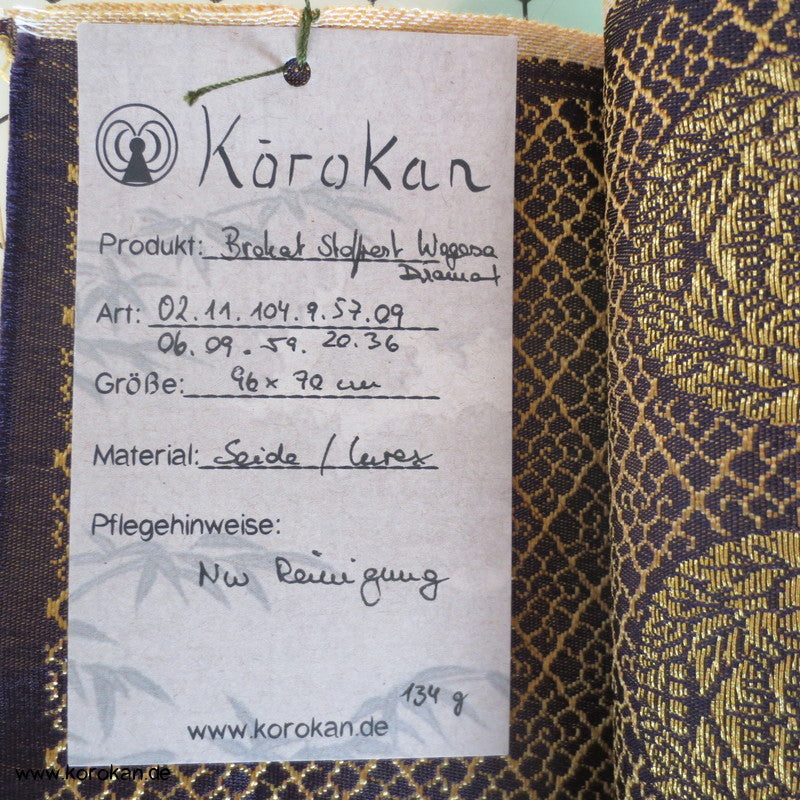 Kōrokan
Produkt: Brokat Stoffest Wagasa
Diamant
Art: 02.11.104.9.57.09
06.09.59.20.36
Größe: 96 x 70 cm
Material: Seide / Lurex
Pflegehinweise:
Nur Reinigung
134 g
www.korokan.de
www.korokan.de